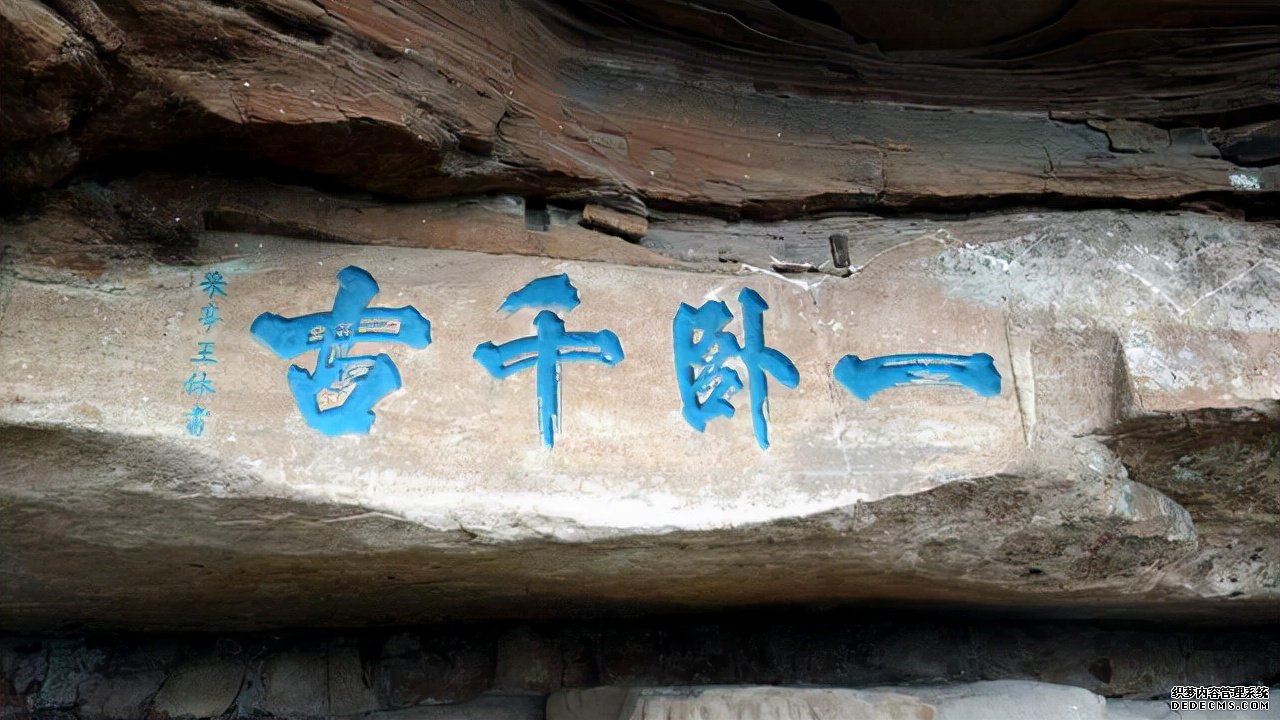 一卧千古
梁亭王休
织梦内容管理系统
DEDECMS.COM